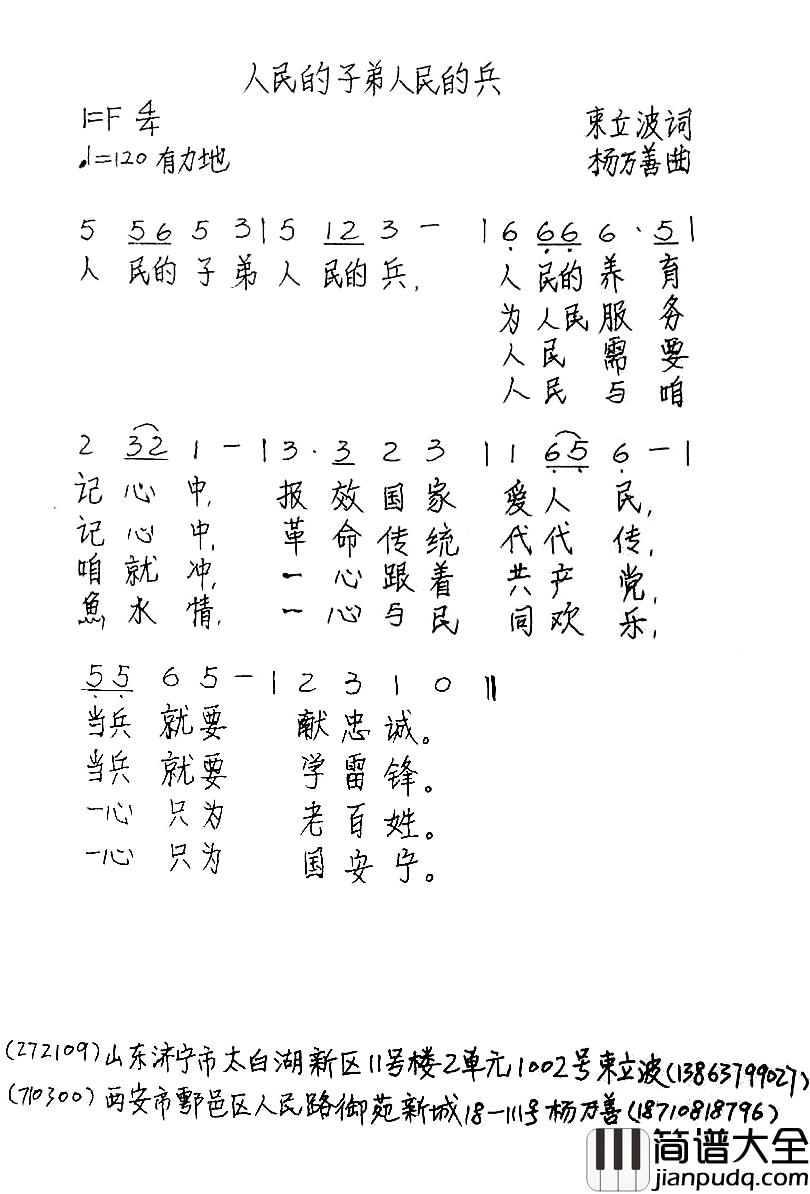 人民的子弟人民的兵
1=F 4/4
束立波词
♩=120 有力地
杨万善曲
5 56 5 3 | 5 12 3 - | 6 66 6 · 5 |
人 民的 子 弟 人 民的 兵, 人 民的 养 育
为 人民 服 务
人 民 需 要
人 民 与 咱
2 32 1 - | 3 · 3 2 3 | 1 65 6 - |
记 心 中, 报 效 国 家 爱 人 民,
记 心 中, 革 命 传 统 代 代 传,
咱 就 冲, 一 心 跟 着 共 产 党,
魚 水 情, 一 心 与 民 同 欢 乐,
55 6 5 - | 2 3 1 0 ‖
当兵 就要 献 忠 诚。
当兵 就要 学 雷 锋。
一心 只为 老 百 姓。
一心 只为 国 安 宁。
(272109)山东济宁市太白湖新区11号楼2单元1002号束立波(13863799027)
(710300)西安市鄠邑区人民路御苑新城18-111号杨万善(18710818796)
简谱大全
jianpudq.com